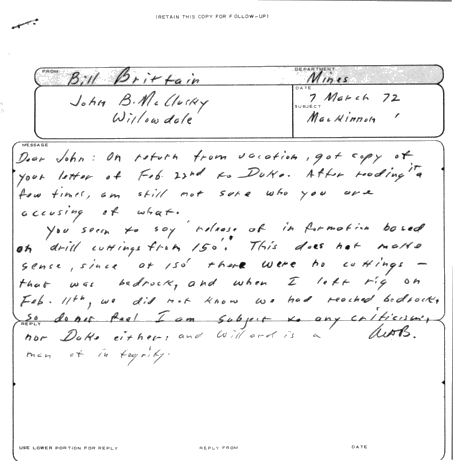 (RETAIN THIS COPY FOR FOLLOW-UP)
FROM
Bill Brittain
DEPARTMENT
Mines
John B. McClusky
Willowdale
DATE
7 March 72
SUBJECT
MacKinnon
MESSAGE
Dear John: On return from vacation, got copy of
your letter of Feb 22nd to Duke. After reading it a
few times, am still not sure who you are
accusing of what.
You seem to say "release of information based
on drill cuttings from 150'". This does not make
sense, since at 150' there were no cuttings -
that was bedrock, and when I left rig on
Feb. 11th, we did not know we had reached bedrock,
so do not feel I am subject to any criticism,
REPLY
nor Duke either, and Willard is a
man of integrity.
USE LOWER PORTION FOR REPLY
REPLY FROM
DATE